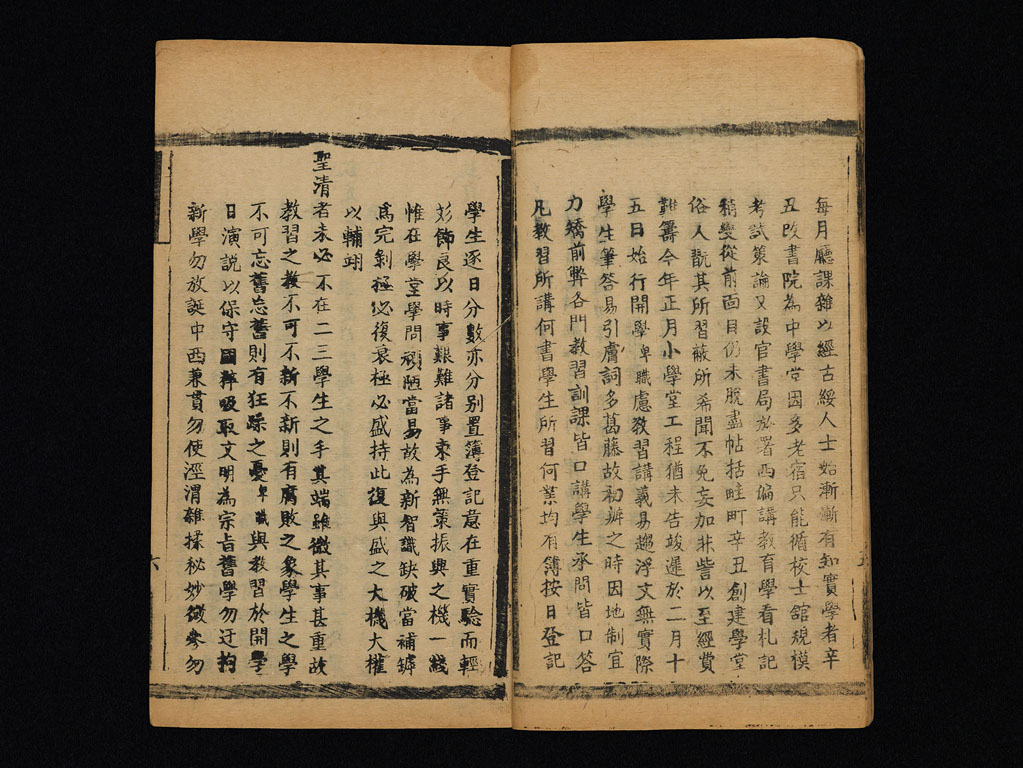 每月廳課雜以經古綏人士始漸漸有知實學者辛
丑改書院為中學堂因多老宿只能循校士舘規模
考試策論又設官書局於署西偏講教育學看札記
稍變從前面目仍未脫盡帖括畦町辛丑創建學堂
俗人既其所習蔽所希聞不免妄加非訾以至經費
難籌今年正月小學堂工程猶未告竣遲於二月十
五日始行開學卑職慮教習講義易趨浮文無實際
學生筆答易引膚詞多葛藤故初辦之時因地制宜
力矯前弊各門教習訓課皆口講學生承問皆口答
凡教習所講何書學生所習何業均有簿按日登記
五
學生逐日分數亦分别置簿登記意在重實驗而輕
彣飾良以時事艱難諸事束手無策振興之機一綫
惟在學堂學問剜陋當易故為新智識缺破當補罅
為完剝極必復衰極必盛持此復與盛之大機大權
以輔翊
聖清者未必不在二三學生之手其端雖微其事甚重故
教習之教不可不新不新則有腐敗之象學生之學
不可忘舊忘舊則有狂躁之憂卑職與教習於開學
日演説以保守國粹吸取文明為宗旨舊學勿迂拘
新學勿放誕中西兼貫勿使涇渭雜揉秘妙微參勿
六